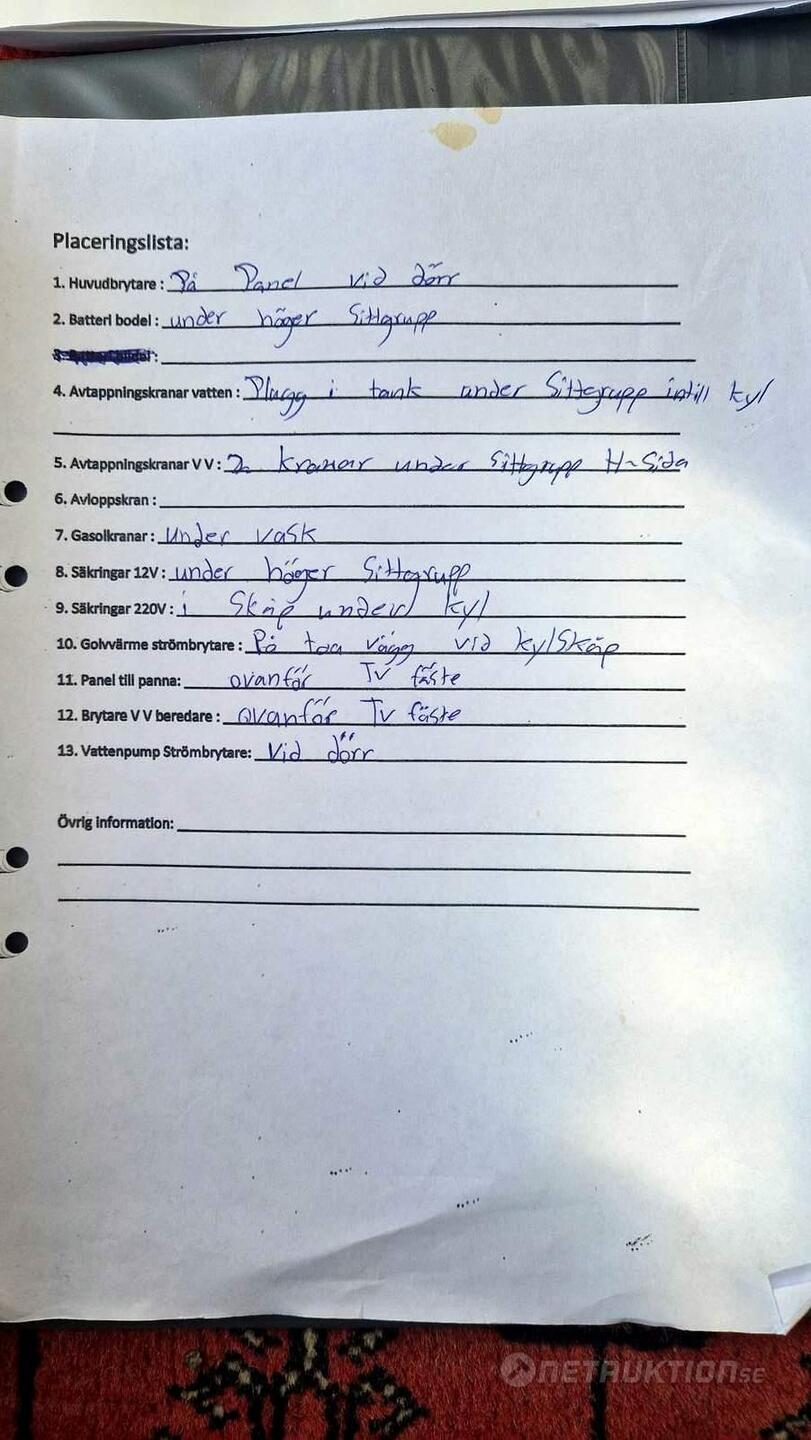 Placeringslista:
1. Huvudbrytare : På Panel vid dörr
2. Batteri bodel : under höger Sittgrupp
4. Avtappningskranar vatten : Plugg i tank under Sittgrupp intill kyl
5. Avtappningskranar V V : 2 kranar under Sittgrupp H-Sida
6. Avloppskran :
7. Gasolkranar : under vask
8. Säkringar 12V : under höger Sittgrupp
9. Säkringar 220V : i Skåp under kyl
10. Golvvärme strömbrytare : På toa vägg vid kylSkåp
11. Panel till panna: ovanför TV fäste
12. Brytare V V beredare : ovanför TV fäste
13. Vattenpump Strömbrytare: Vid dörr
Övrig information:
NETAUKTION.SE